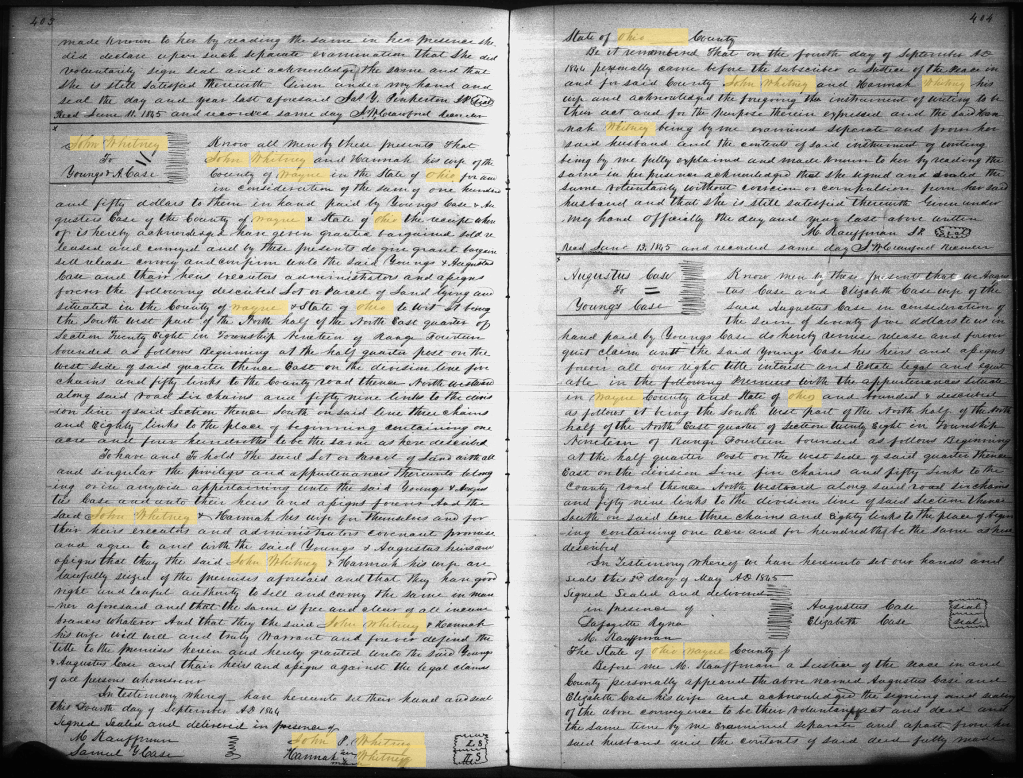 403
made known to her by reading the same in her presence she
did declare upon such separate examination that She did
voluntarily sign seal and acknowledge the same and that
She is still Satisfied therewith Given under my hand and
seal the day and year last aforesaid Y. Pinkerton JP Seal
Recd June 11. 1845 and recorded same day J W Crawford Recorder
John Whitney
To
Youngs & A. Case
Know all men by these presents That
John Whitney and Hannah his wife of the
County of Wayne in the State of Ohio for and
in consideration of the sum of one hundred
and fifty dollars to them in hand paid by Youngs Case & Au
gustus Case of the County of Wayne & State of Ohio the receipt where
of is hereby acknowledged have given granted bargained sold re
leased and conveyed and by these presents do give grant bargain
sell release convey and confirm unto the said Youngs & Augustus
Case and their heirs executors administrators and assigns
forever the following described Lot or Parcel of Land lying and
situated in the County of Wayne & State of Ohio to wit It being
the South West part of the North half of the North East quarter of
Section Twenty Eight in Township Nineteen of Range Fourteen
bounded as follows Beginning at the half quarter post on the
west side of said quarter thence East on the division line five
chains and fifty links to the County road thence North Westward
along said road Six chains and fifty nine links to the divis
ion line of said Section thence South on said line three chains
and Eighty links to the place of beginning containing one
acre and four hundredths to be the same as here described
To have and To hold the said Lot or Parcel of Land with all
and singular the privileges and appurtenances thereunto belong
ing or in anywise appertaining unto the said Youngs & Augus
tus Case and unto their heirs and assigns forever And the
said John Whitney & Hannah his wife for themselves and for
their heirs executors and administrators covenant promise
and agree to and with the said Youngs & Augustus heirs and
assigns that they the said John Whitney & Hannah his wife are
lawfully seized of the premises aforesaid and that they have good
right and lawful authority to sell and convey the same in man
ner aforesaid and that the same is free and clear of all incum
brances whatever And that they the said John Whitney & Hannah
his wife will well and truly Warrant and forever defend the
title to the premises herein and hereby granted unto the said Youngs
& Augustus Case and their heirs and assigns against the legal claims
of all persons whomsoever
In testimony whereof have hereunto set their hand and seal
this Fourth day of September AD 1844
Signed Sealed and delivered in presence of
M Kauffman
Samuel Case
John P. Whitney LS
Hannah Whitney LS
404
State of Ohio County
Be it remembered That on the fourth day of September AD
1844 personally came before the subscriber a Justice of the Peace in
and for said County John Whitney and Hannah Whitney his
wife and acknowledged the foregoing instrument of writing to be
their act and for the purpose therein expressed and the said Han
nah Whitney being by me examined seperate and from her
said husband and the contents of said instrument of writing
being by me fully explained and made known to her by reading the
same in her presence acknowledged that she signed and sealed the
same voluntarily without coercion or compulsion from her said
husband and that she is still satisfied therewith Given under
my hand officially the day and year last above written
M. Kauffman J.P. Seal
Recd June 13. 1845 and recorded same day J W Crawford Recorder
Augustus Case
To
Youngs Case
Know men by these presents that we Augus
tus Case and Elizabeth Case wife of the
said Augustus Case in consideration of
the sum of seventy five dollars to us in
hand paid by Youngs Case do hereby demise release and forever
quit claim unto the said Youngs Case his heirs and assigns
forever all our right title interest and Estate legal and equit
able in the following Premises with the appurtenances situate
in Wayne County and State of Ohio and bounded & described
as follows it being the South West part of the North half of the North
half of the North East quarter of Section twenty Eight in Township
Nineteen of Range Fourteen bounded as follows Beginning
at the half quarter Post on the west side of said quarter thence
East on the division Line five chains and fifty Links to the
County road thence North Westward along said road six chains
and fifty nine links to the division line of said Section thence
South on said Line three chains and Eighty links to the place of begin
ing containing one acre and four hundredths be the same as here
described
In Testimony Whereof we have hereunto set our hands and
seals this 3d day of May AD 1845
Signed Sealed and delivered
in presence of
Lafayette
M. Kauffman
Augustus Case seal
Elizabeth Case seal
The State of Ohio Wayne County
Before me M. Kauffman a Justice of the Peace in and
County personally appeared the above named Augustus Case and
Elizabeth Case his wife and acknowledged the signing and sealing
of the above conveyance to be their voluntary act and deed and
the same time by me examined separate and apart from her
said husband and the contents of said deed fully made